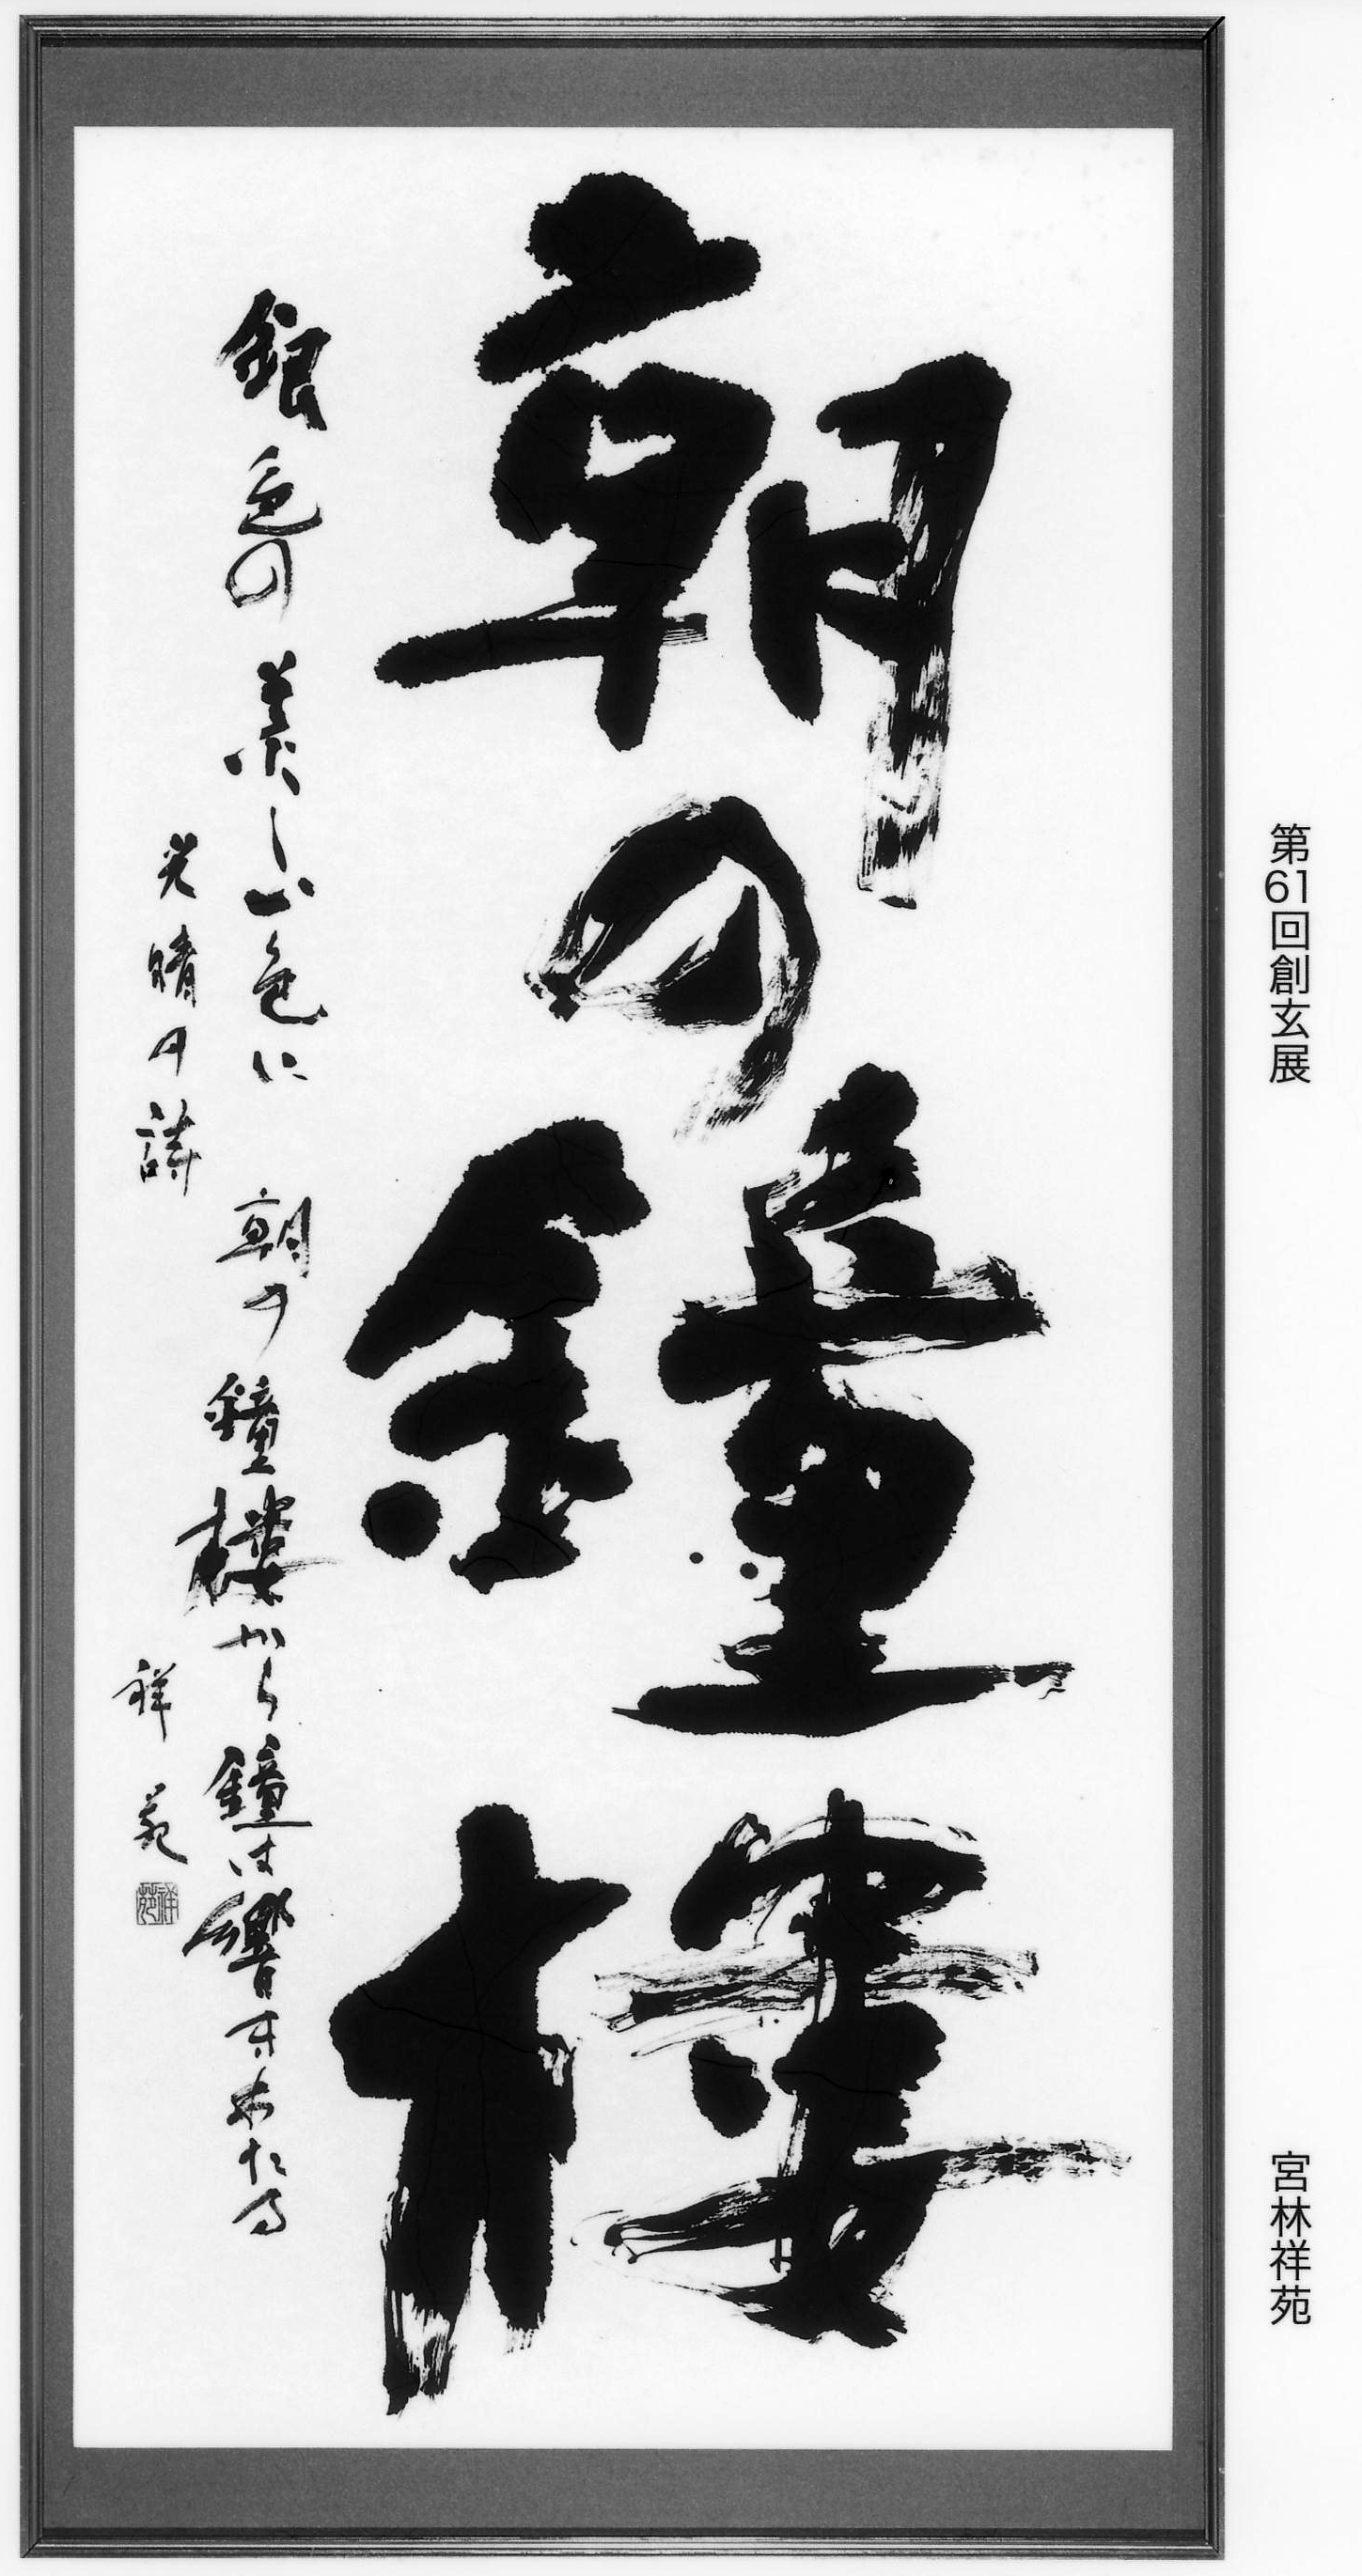 第61回創玄展
宮林祥苑
朝の鐘樓
銀色の美しい色に 朝の鐘樓から鐘は響きわたる
光晴の詩
祥苑
祥苑